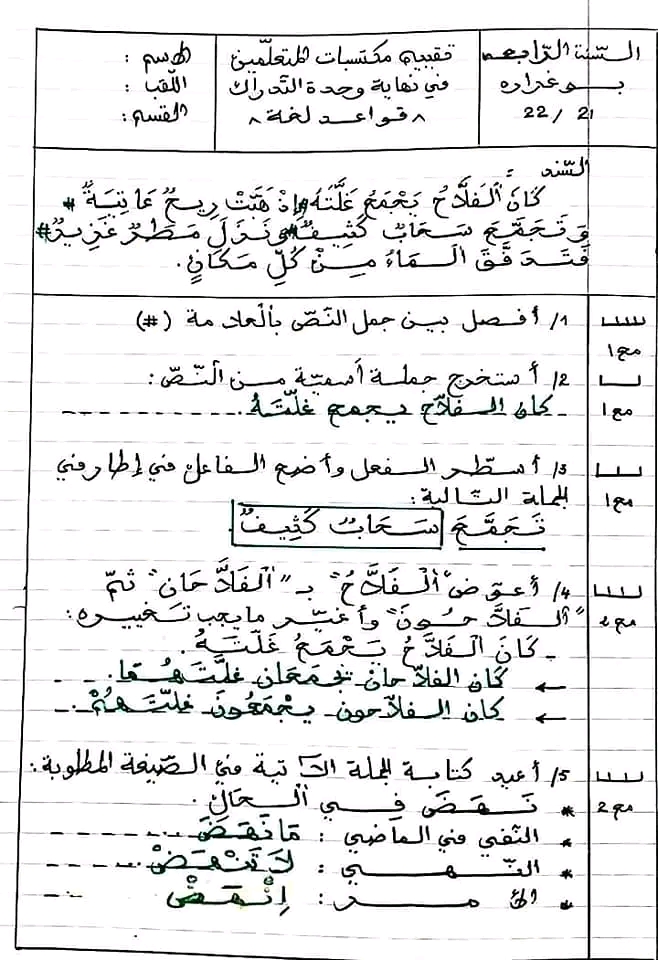 السّنة الرّابعة
بوغرارة
21 / 22
تقييم مكتسبات المتعلّمين
في نهاية وحدة التّدرّك
^ قواعد لغة ^
الإسم :
اللّقب :
القسم :
السّند :
كَانَ ٱلْفَلَّاحُ يَجْمَعُ غَلَّتَهُ # إِذْ هَبَّتْ رِيحٌ عَاتِيَةٌ #
وَتَجَمَّعَ سَحَابٌ كَثِيفٌ # وَنَزَلَ مَطَرٌ غَزِيرٌ #
فَتَدَفَّقَ الْمَاءُ مِنْ كُلِّ مَكَانٍ.
1/ أفصل بين جمل النّصّ بالعلامة (#)
مع1
2/ أستخرج جملة ٱسميّة من النّصّ :
مع1
كان الفلّاح يجمع غلّتَهُ.
3/ أسطّر الفعل وأضع الفاعل في إطار في
مع1
الجملة التّالية :
تَجَمَّعَ سَحَابٌ كَثِيفٌ.
4/ أعوّض "ٱلْفَلَّاحُ" بـ "ٱلْفَلَّاحَانِ" ثمّ
مع2
"ٱلْفَلَّاحُونَ" وأغيّر ما يجب تغييره :
- كَانَ ٱلْفَلَّاحُ يَجْمَعُ غَلَّتَهُ.
← كَانَ الفلّاحانِ يَجْمَعَانِ غلّتَهُمَا.
← كان الفلّاحون يجْمَعُونَ غلّتَهُمْ.
5/ أعيد كتابة الجملة الآتية في الصّيغة المطلوبة :
مع2
* نَهَضَ فِي ٱلْحَالِ.
* النّفي في الماضي : مَا نَهَضَ
* النّهي : لَا تَنْهَضْ
* الأمر : اِنْهَضْ